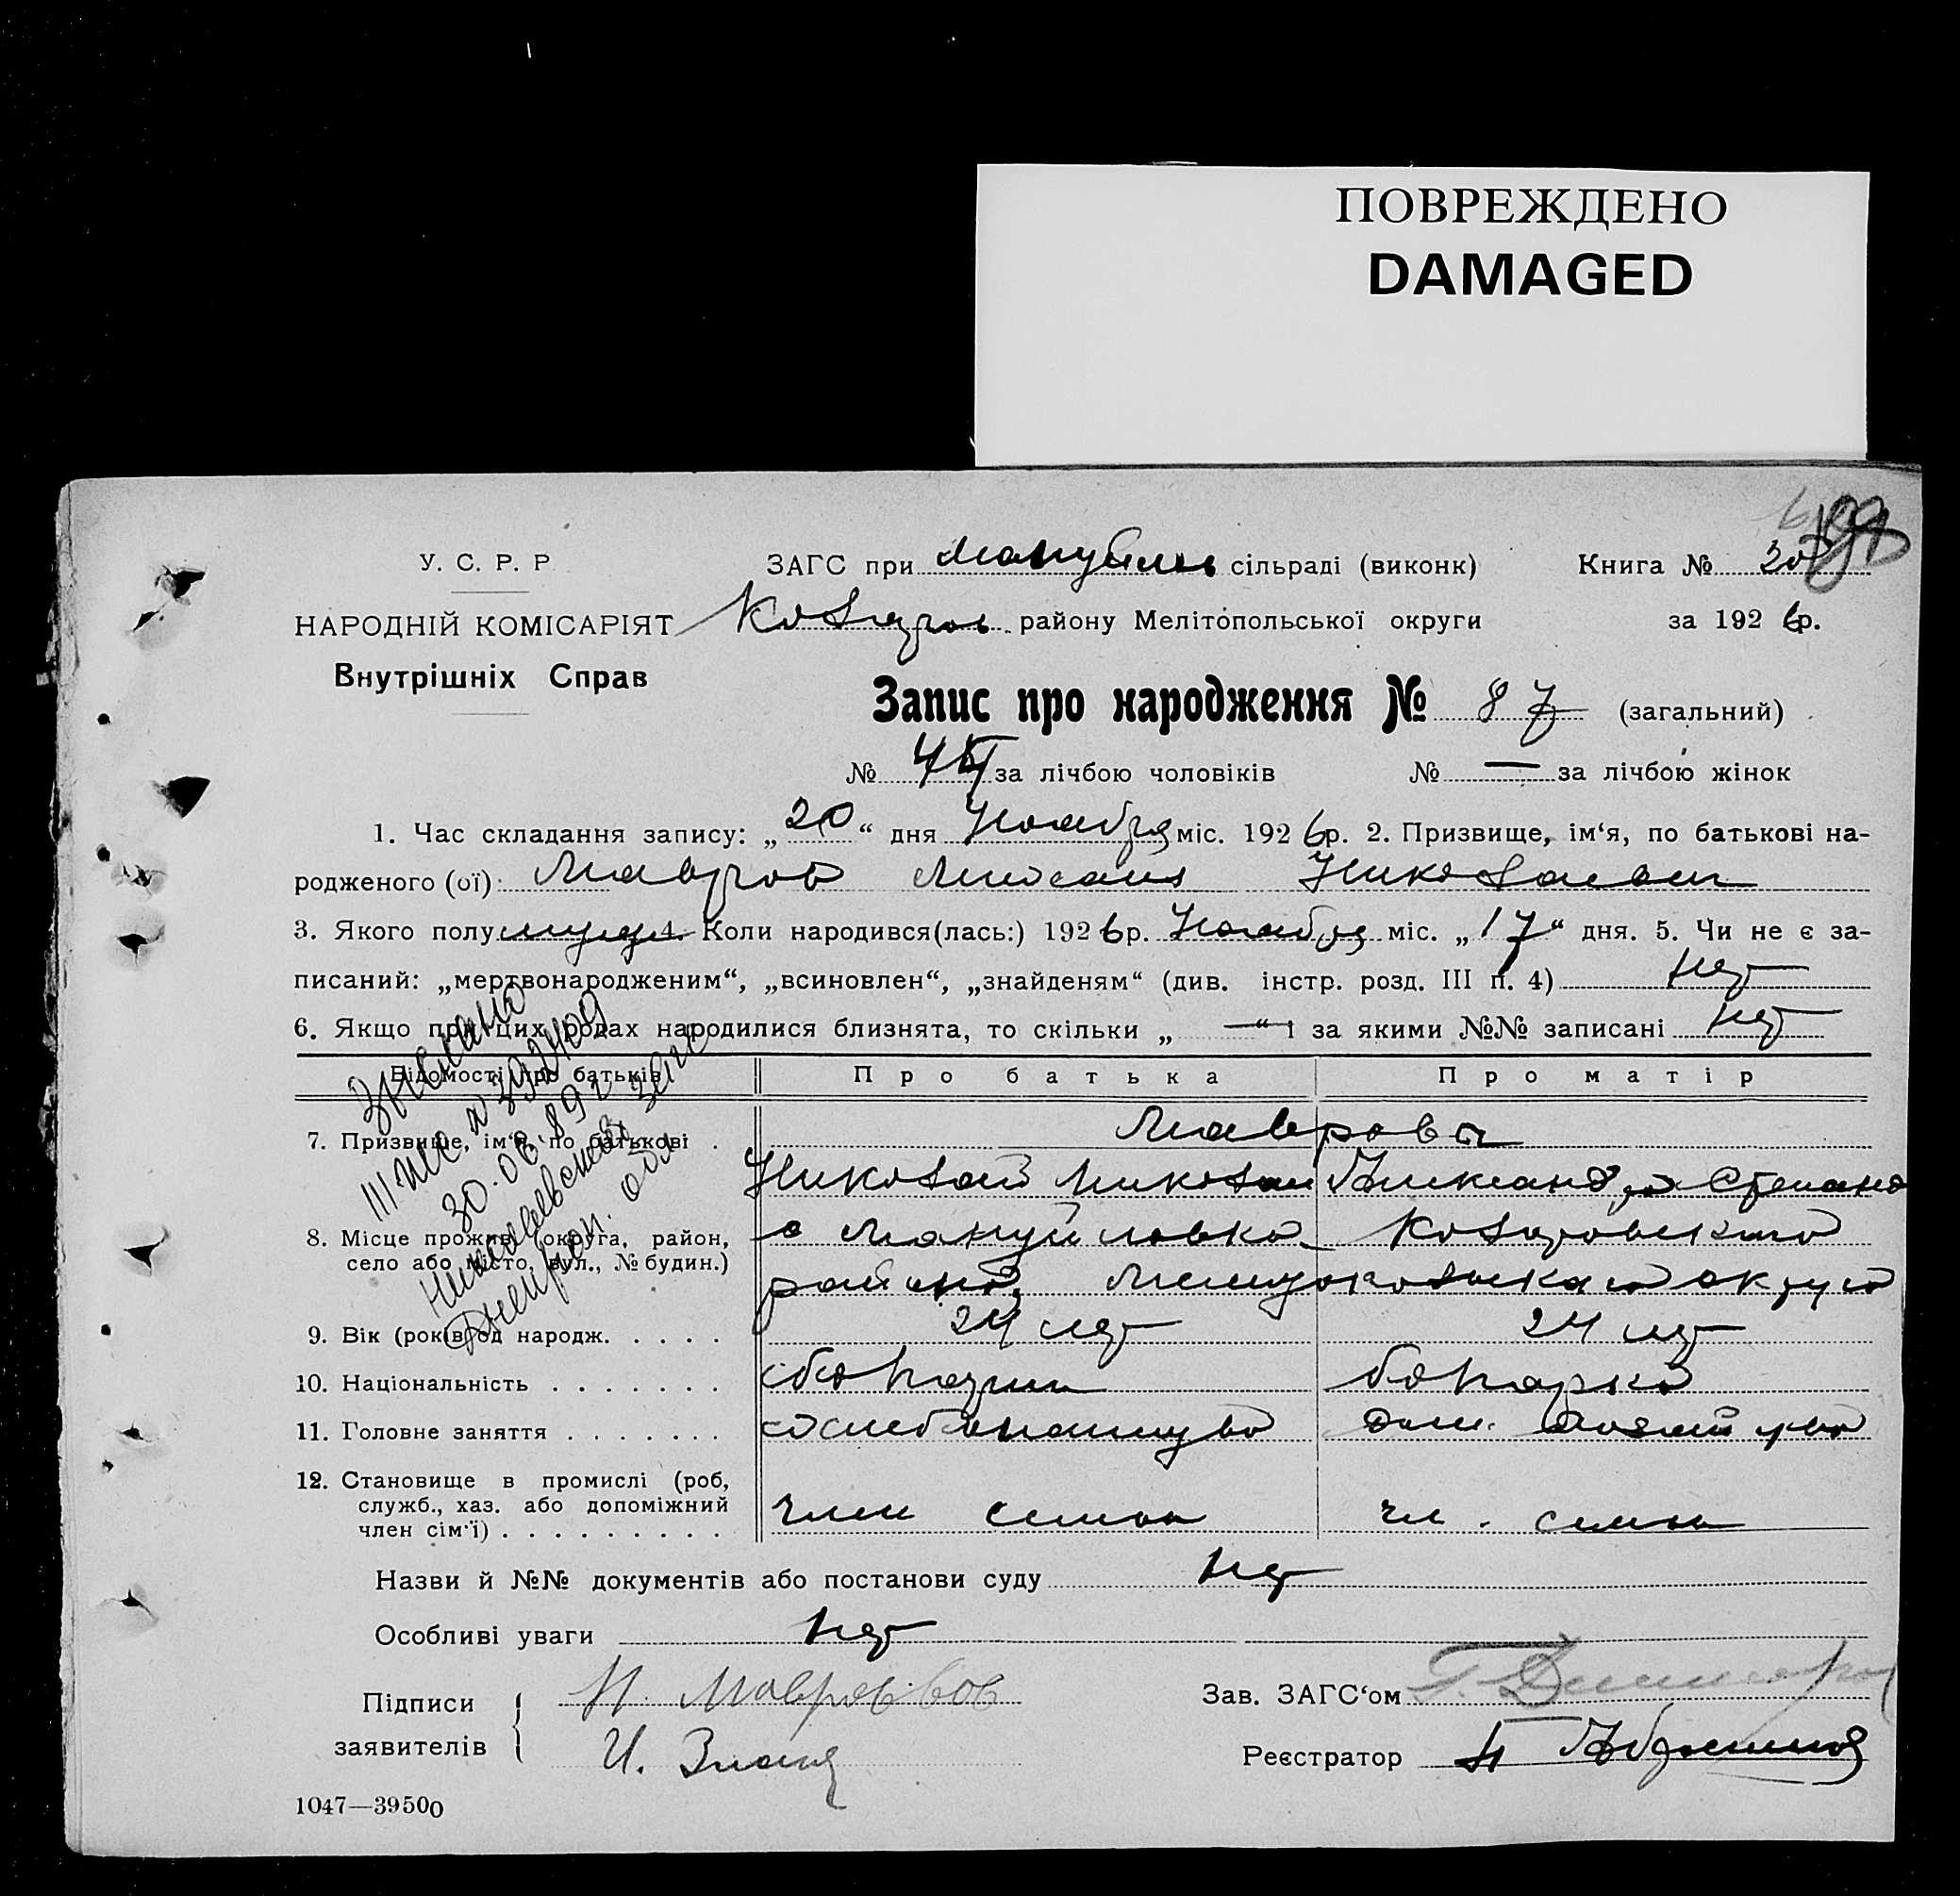 ПОВРЕЖДЕНО
DAMAGED
У. С. Р. Р
ЗАГС при Мануйль сільраді (виконк)
Книга № 20
НАРОДНІЙ КОМІСАРІЯТ
району Мелітопольської округи
за 1926р.
Внутрішніх Справ
Запис про народження № 87 (загальний)
№ 45 за лічбою чоловіків № — за лічбою жінок
1. Час складання запису: „20“ дня Ноября міс. 1926р. 2. Призвище, ім‘я, по батькові на-
родженого (ої): Мавров Михаил Николаевич
3. Якого полу муж 4. Коли народився(лась:) 1926р. Ноября міс. „17“ дня. 5. Чи не є за-
писаний: „мертвонародженим“, „всиновлен“, „знайденям“ (див. інстр. розд. III п. 4) нет
6. Якщо при цих родах народилися близнята, то скільки „ —“ і за якими №№ записані нет
Відомості про батьків
Про батька
Про матір
7. Призвище, ім‘я, по батькові .
Маврови
Николай Николаи
Александра Степано
8. Місце прожив. (округа, район,
село або місто, вул., № будин.)
с Мануйловка
района, округи
9. Вік (років од народж. . . . .
24 лет
24 лет
10. Національність . . . . . . .
болгарин
болгарка
11. Головне заняття . . . . . . .
хлебопашество
дом. хозяйство
12. Становище в промислі (роб,
служб., хаз. або допоміжний
член сім‘ї) . . . . . . . . .
член семьи
чл. семьи
Назви й №№ документів або постанови суду нет
Особливі уваги нет
Підписи
заявителів
Н. Мавров
И. Злать
Зав. ЗАГС‘ом
Реєстратор
1047—39500
30.08.89 г